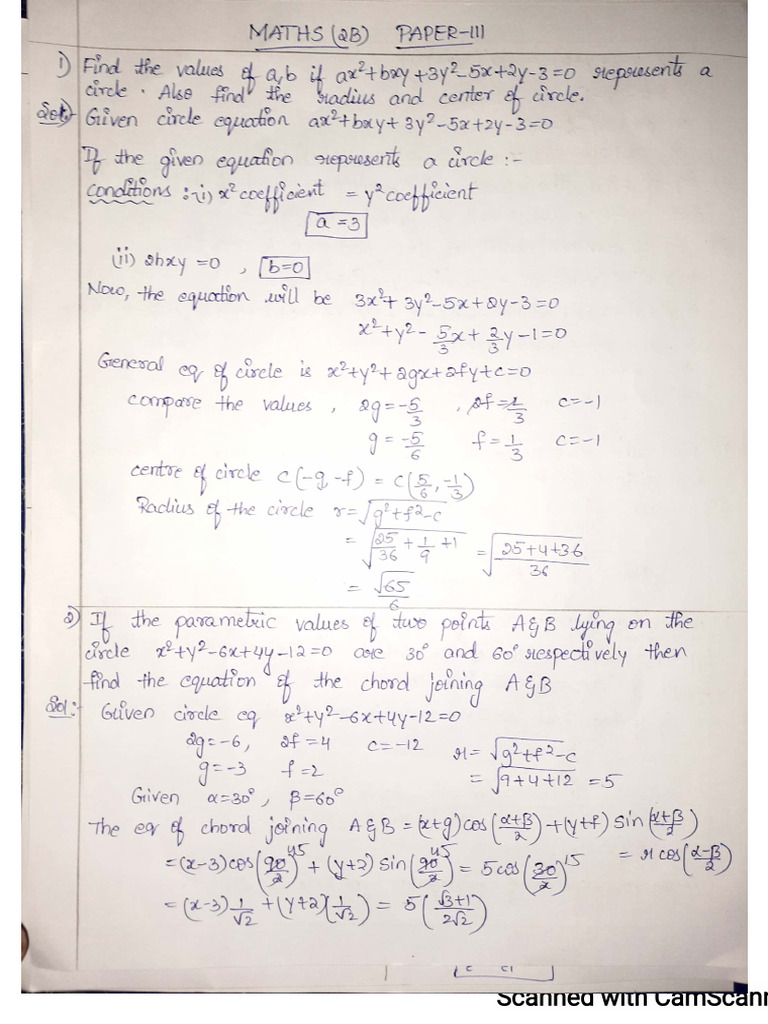 MATHS (2B) PAPER-III
1) Find the values of a,b if ax²+bxy+3y²-5x+2y-3=0 represents a
circle. Also find the radius and center of circle.
Sol:- Given circle equation ax²+bxy+3y²-5x+2y-3=0
If the given equation represents a circle :-
conditions :- i) x² coefficient = y² coefficient
a=3
(ii) 2hxy=0 , b=0
Now, the equation will be 3x²+3y²-5x+2y-3=0
x²+y²-5/3x+2/3y-1=0
General eq of circle is x²+y²+2gx+2fy+c=0
compare the values , 2g=-5/3 , 2f=2/3 c=-1
g=-5/6 f=1/3 c=-1
centre of circle c(-g,-f) = c(5/6,-1/3)
Radius of the circle r=√g²+f²-c
= √25/36+1/9+1 = √25+4+36/36
= √65/6
2) If the parametric values of two points A&B lying on the
circle x²+y²-6x+4y-12=0 are 30° and 60° respectively then
find the equation of the chord joining A&B
Sol:- Given circle eq x²+y²-6x+4y-12=0
2g=-6, 2f=4 c=-12 r=√g²+f²-c
g=-3 f=2 =√9+4+12 =5
Given α=30°, β=60°
The eq of chord joining A&B = (x+g)cos(α+β/2)+(y+f) sin(α+β/2)
= r cos(α-β/2)
=(x-3)cos(90/2)45 + (y+2) sin(90/2)45 = 5cos(30/2)15
=(x-3)1/√2 +(y+2)(1/√2) = 5(√3+1/2√2)
Scanned with CamScann